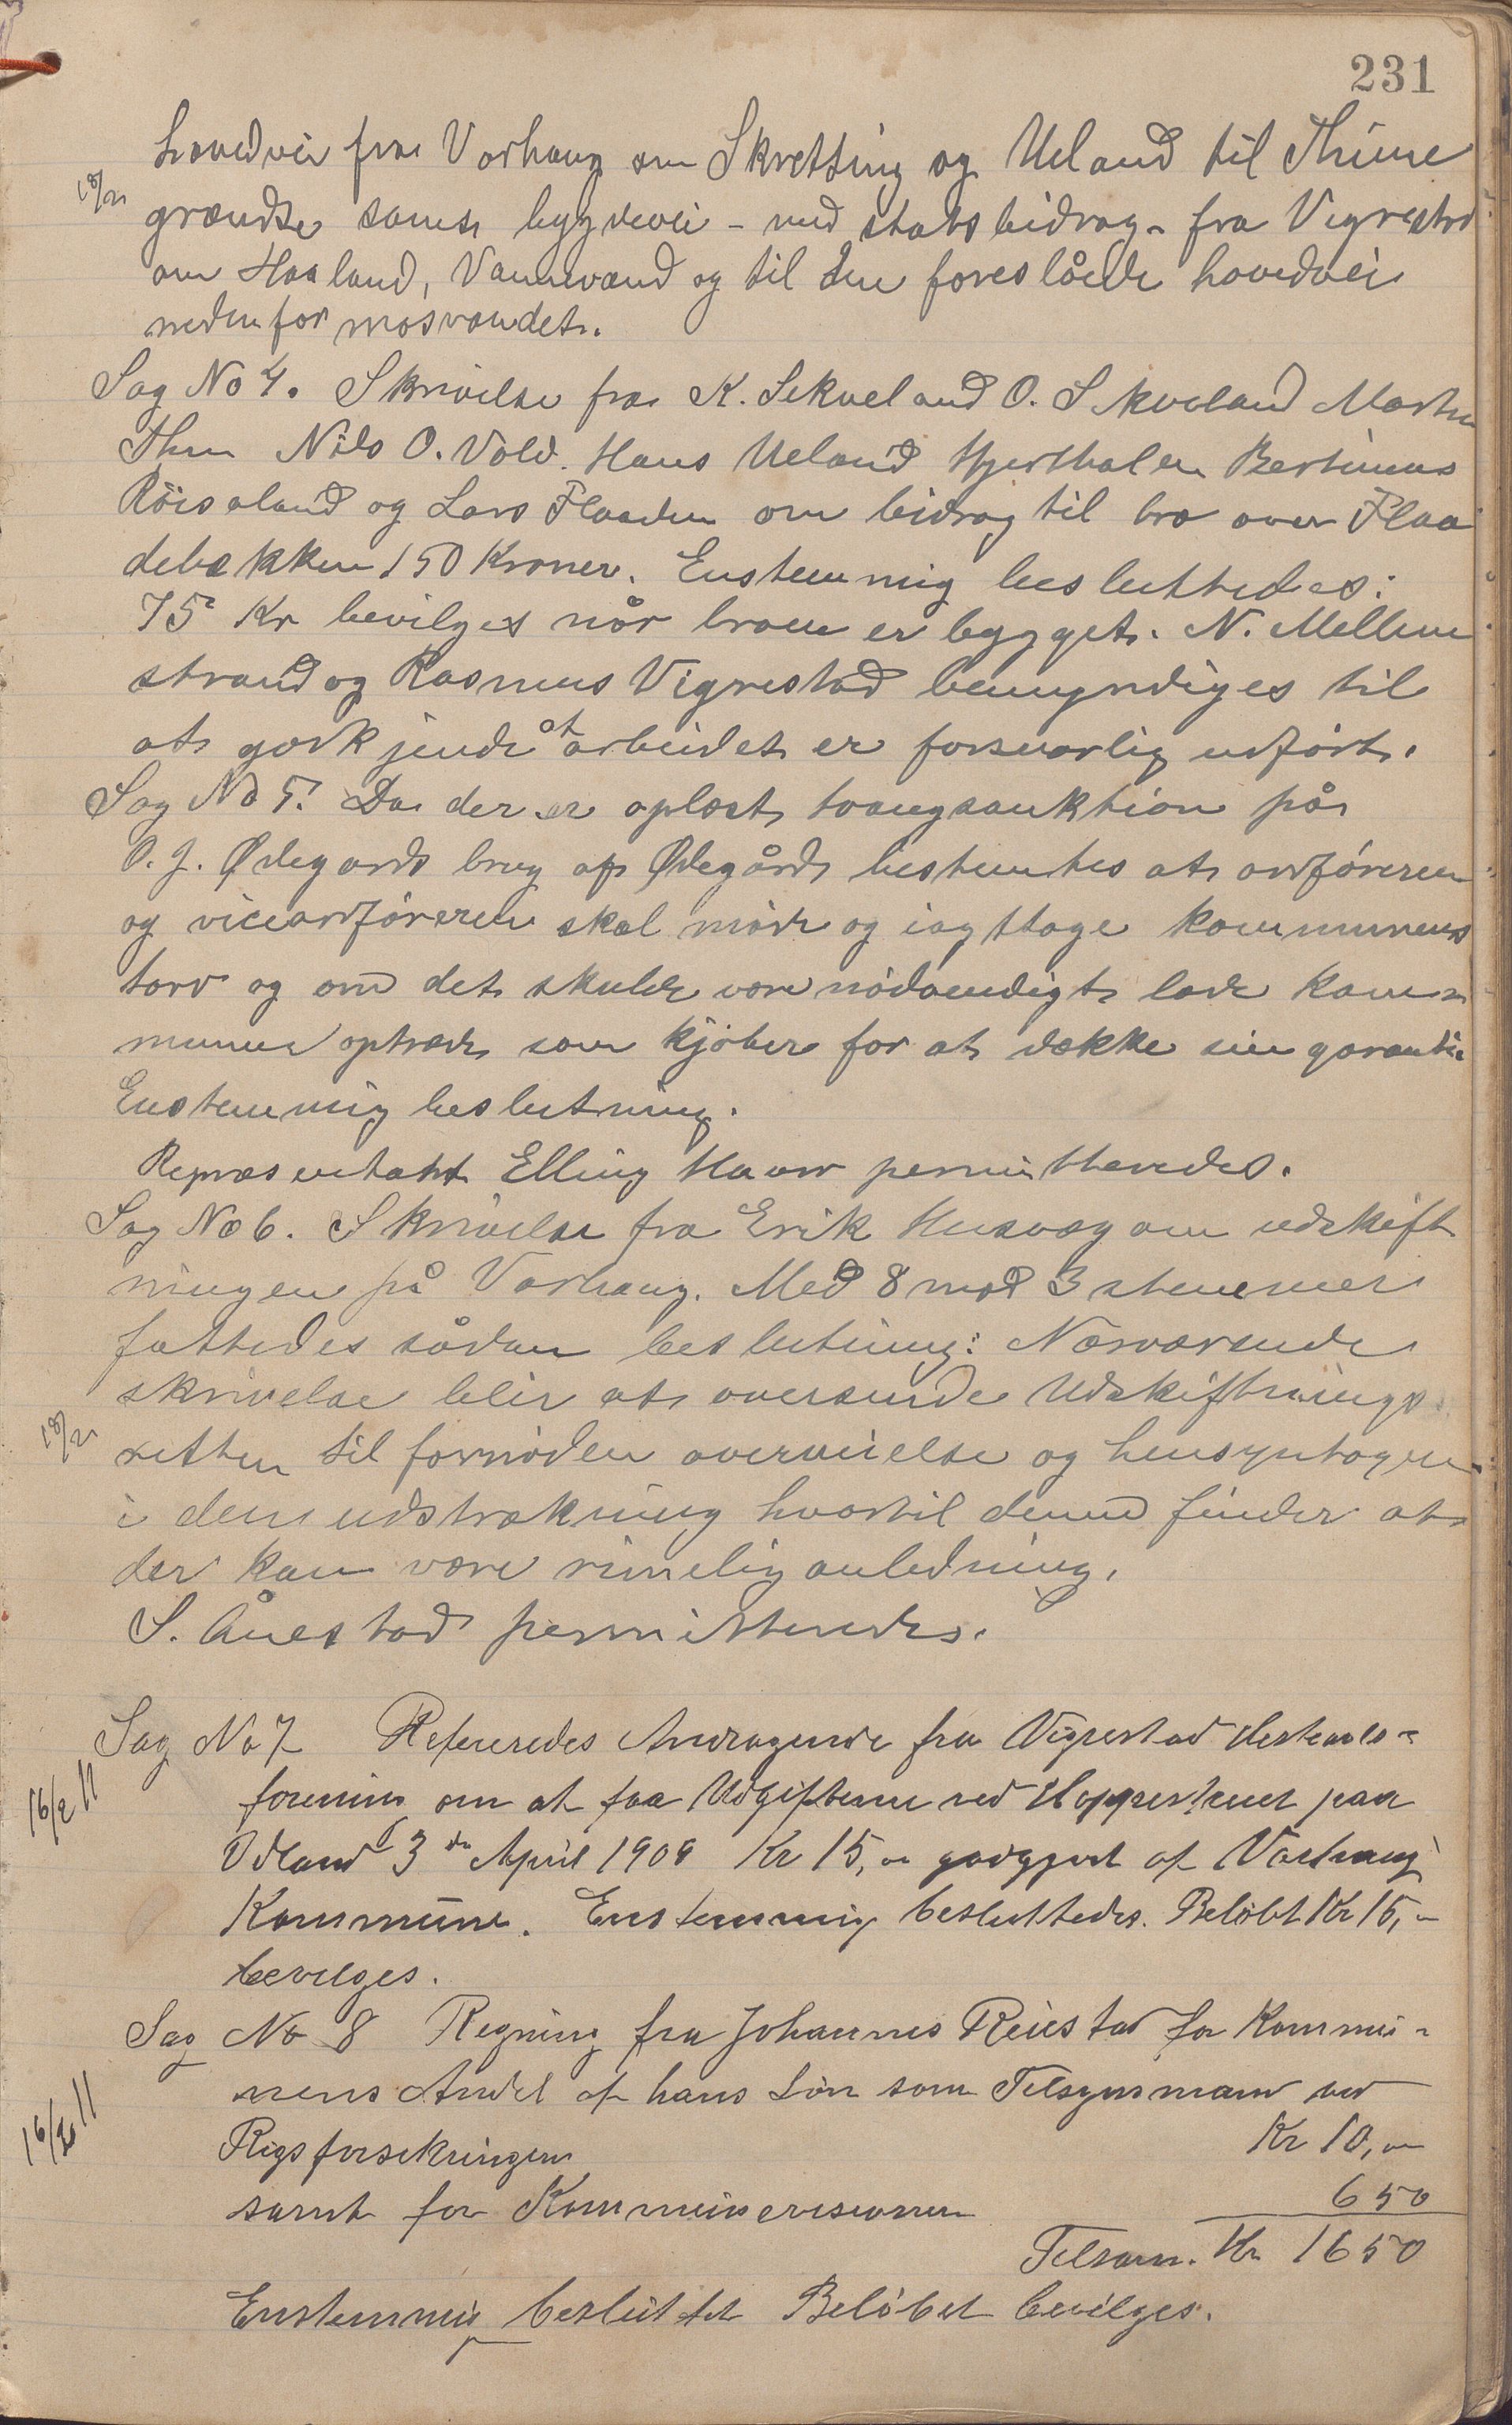 231
hovedvei fra Varhaug om Skretting og Ueland til Thime
18/2
grændse samt bygdevei - med statsbidrag - fra Vigrestad
om Haaland, Vannvand og til den foreslåede hovedvei
nedenfor mosvandet.
Sag No 4. Skrivelse fra K. Sekveland O. Skveland Martin
Thu Nils O. Vold. Hans Ueland Hjerthalen Bertinius
Röisoland og Lars Flaaden om bidrag til bro over Flaa
debækken 150 Kroner. Enstemmig besluttedes:
75 Kr bevilges når broen er bygget. N. Mellem
strand og Rasmus Vigrestad bemyndiges til
at godkjende at arbeidet er forsvarlig udført.
Sag No 5. Da der er oplæst tvangsauktion på
O. J. Ødegårds brug af Ødegård bestemtes at ordføreren
og viceordføreren skal møde og iagttage kommunens
tarv og om det skulde være nödvendigt lade kom
munen optræde som kjøber for at dække sin garanti.
Enstemmig beslutning.
Repræsentant Elling Haar permitteredes.
Sag No 6. Skrivelse fra Erik Husvæg om udskift
ningen på Varhaug. Med 8 mod 3 stemmer
fattedes sådan beslutning: Nærværende
skrivelse blir at oversende Udskiftnings
18/2
retten til fornöden overveielse og hensyntagen
i den udstrækning hvortil denne finder at
der kan være rimelig anledning.
S. Ånestad permitteredes.
Sag No 7 Refereredes Andragende fra Vigrestad Hesteavls-
16/2 11
forening om at faa Udgifterne ved Hoppeskuet paa
Udland 3de April 1909 Kr 15,- godtgjort af Varhaug
Kommune. Enstemmig besluttedes. Beløbet Kr 15,-
bevilges.
Sag No 8 Regning fra Johannes Reiestad for Kommu-
nens Andel af hans Løn som Tilsynsmand ved
16/2 11
Rigsforsikringen Kr 10,-
samt for Kommunerevisionen 6 50
Tilsam. Kr 16 50
Enstemmig besluttet Beløbet bevilges.